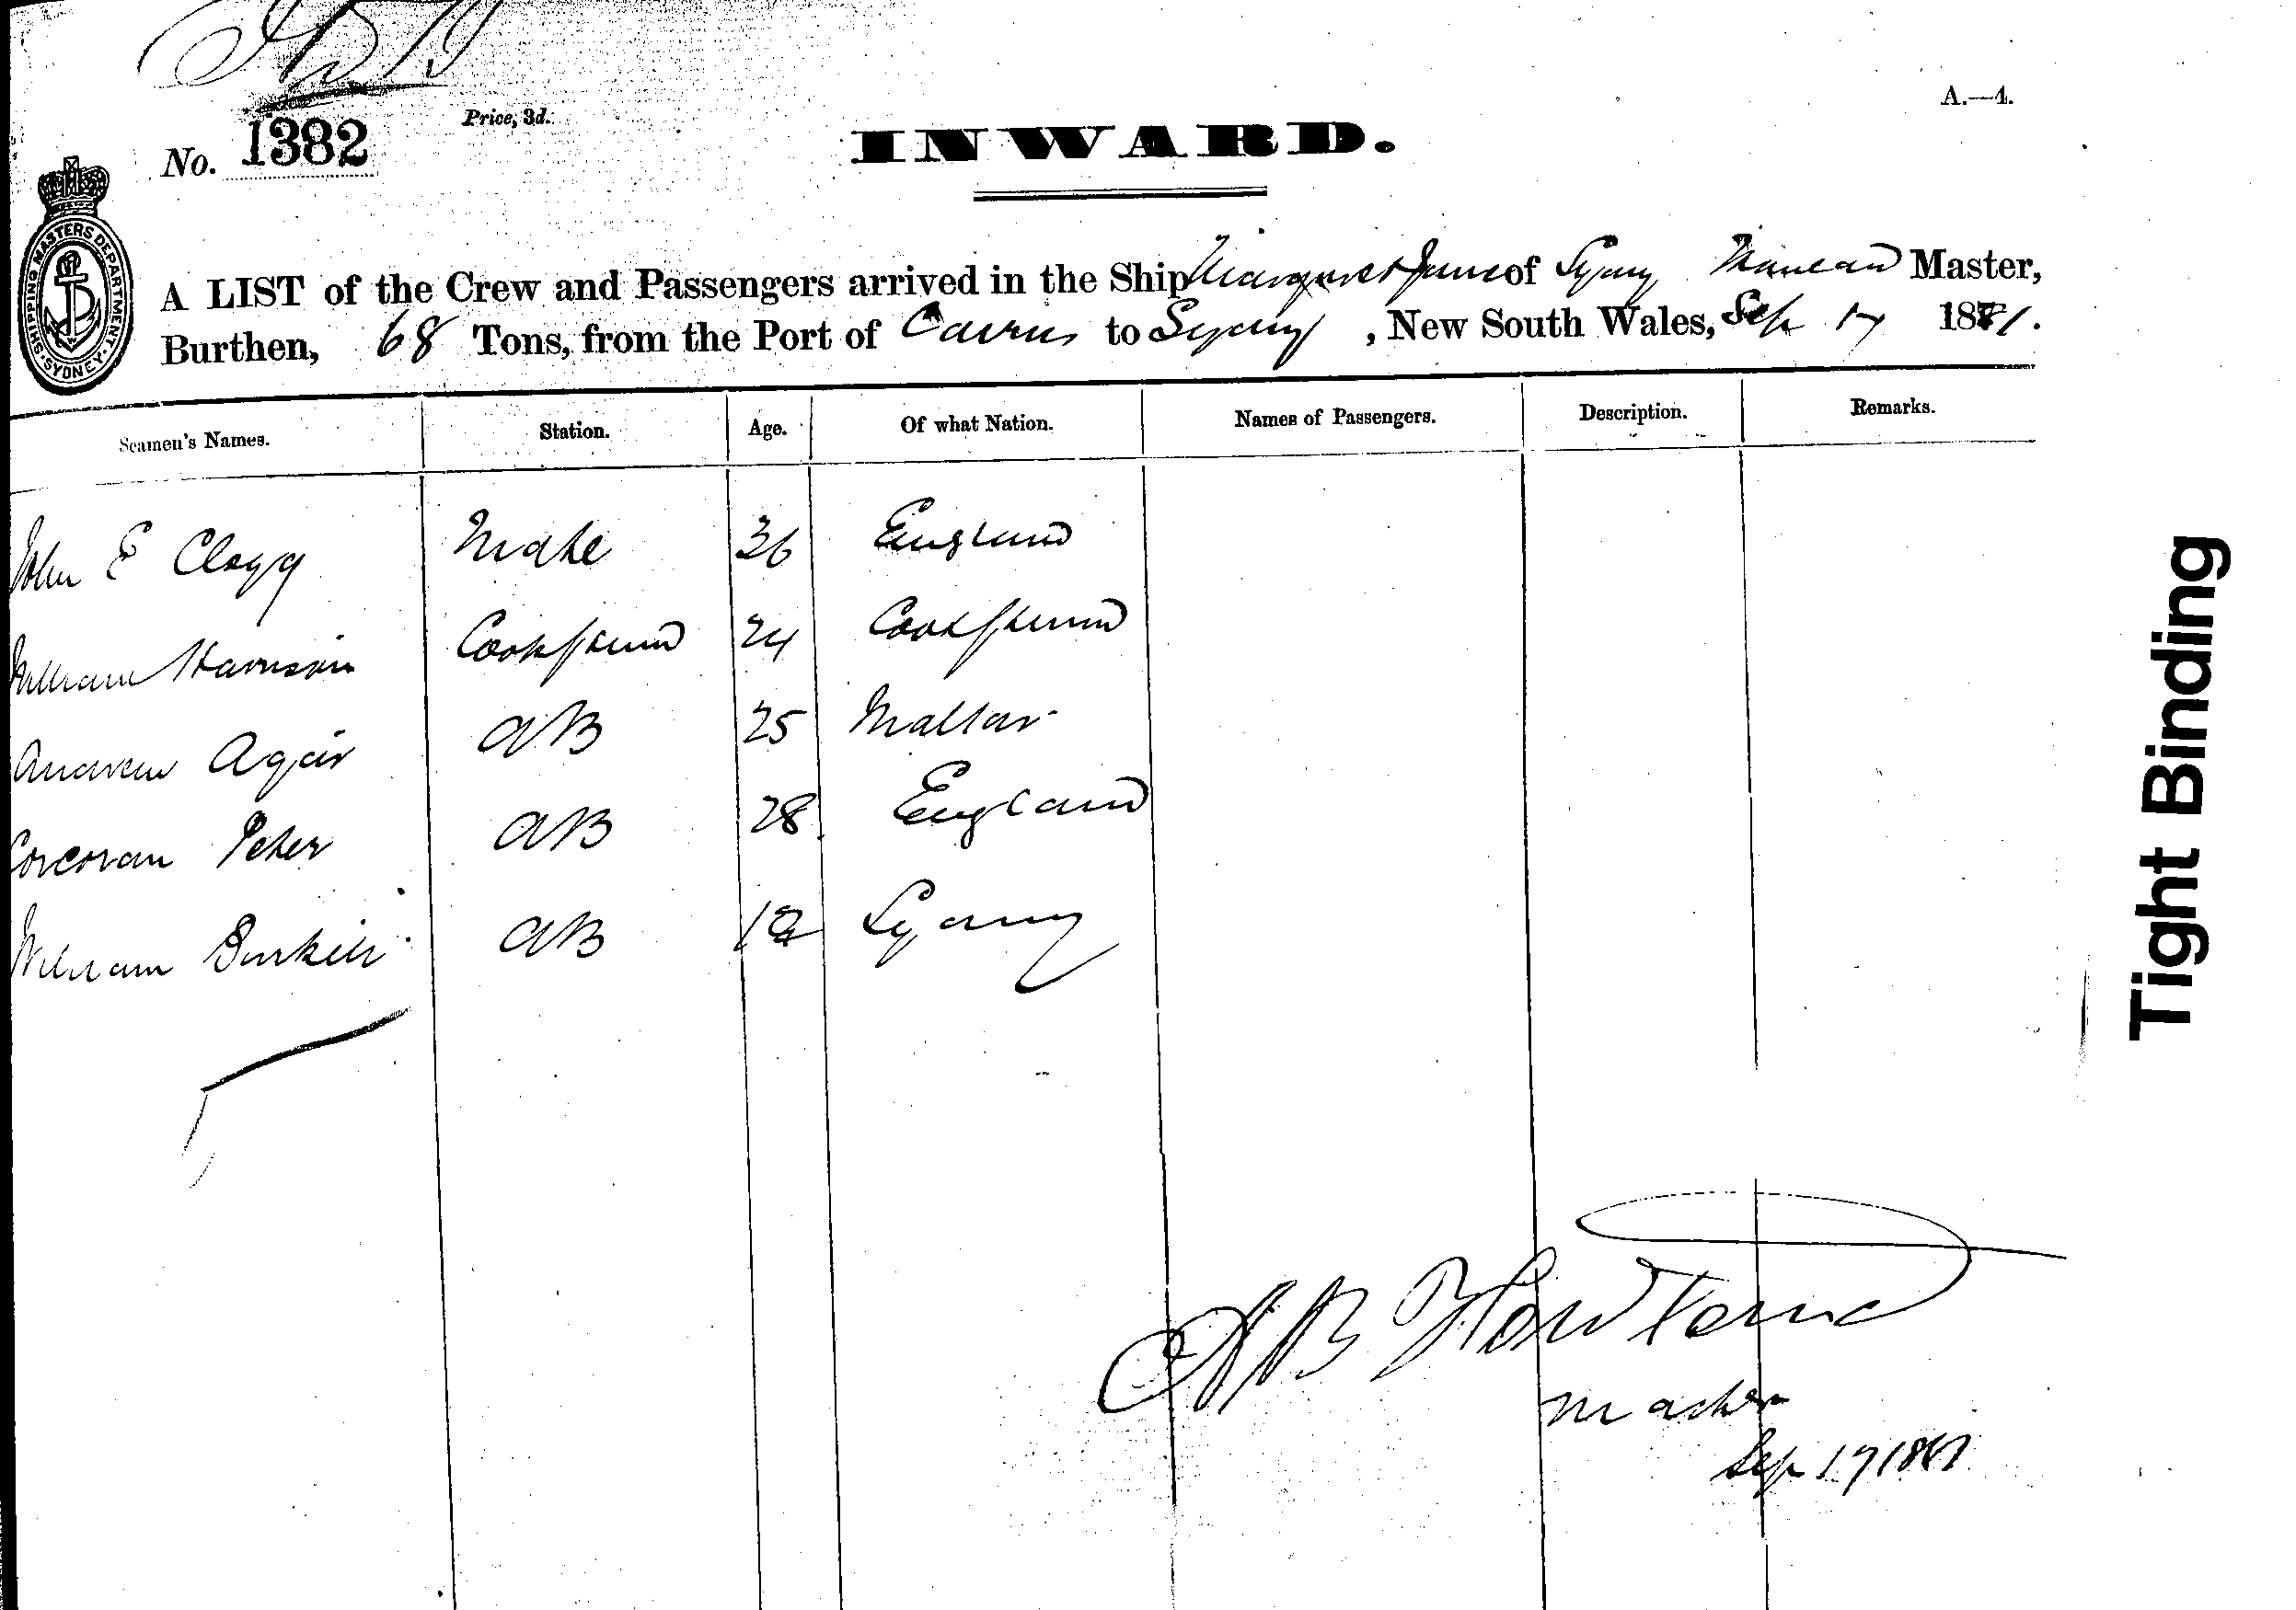 A.—4.
Price, 3d.
No. 1382
INWARD.
SHIPPING MASTERS DEPARTMENT. SYDNEY
A LIST of the Crew and Passengers arrived in the Ship Margaret Jane of Sydney Master,
Burthen, 68 Tons, from the Port of Cairns to Sydney, New South Wales, Sep 17 1881.
Seamen's Names. Station. Age. Of what Nation. Names of Passengers. Description. Remarks.
John E Clegg Mate 36 England
William Harrison Cook & Seaman 24
Andrew Agar AB 25 Malta
Corcoran Peter AB 28 England
William AB Sydney
A B
Master
Sep 17 1881
Tight Binding